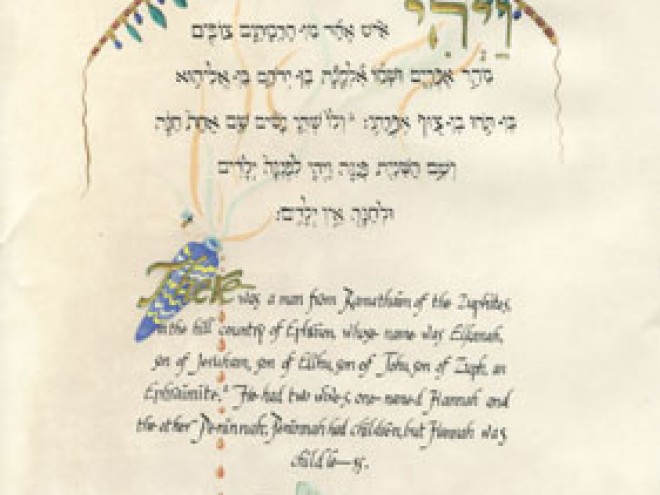 וַיְהִי
אִישׁ אֶחָד מִן־הָרָמָתַיִם צוֹפִים
מֵהַר אֶפְרָיִם וּשְׁמוֹ אֶלְקָנָה בֶּן־יְרֹחָם בֶּן־אֱלִיהוּא
בֶּן־תֹּחוּ בֶן־צוּף אֶפְרָתִי׃ וְלוֹ שְׁתֵּי נָשִׁים שֵׁם אַחַת חַנָּה
וְשֵׁם הַשֵּׁנִית פְּנִנָּה וַיְהִי לִפְנִנָּה יְלָדִים
וּלְחַנָּה אֵין יְלָדִים׃
There was a man from Ramathaim of the Zuphites,
in the hill country of Ephraim, whose name was Elkanah,
son of Jeroham, son of Elihu, son of Tohu, son of Zuph, an
Ephraimite. ² He had two wives, one named Hannah and
the other Peninnah; Peninnah had children, but Hannah was
childle—ss.